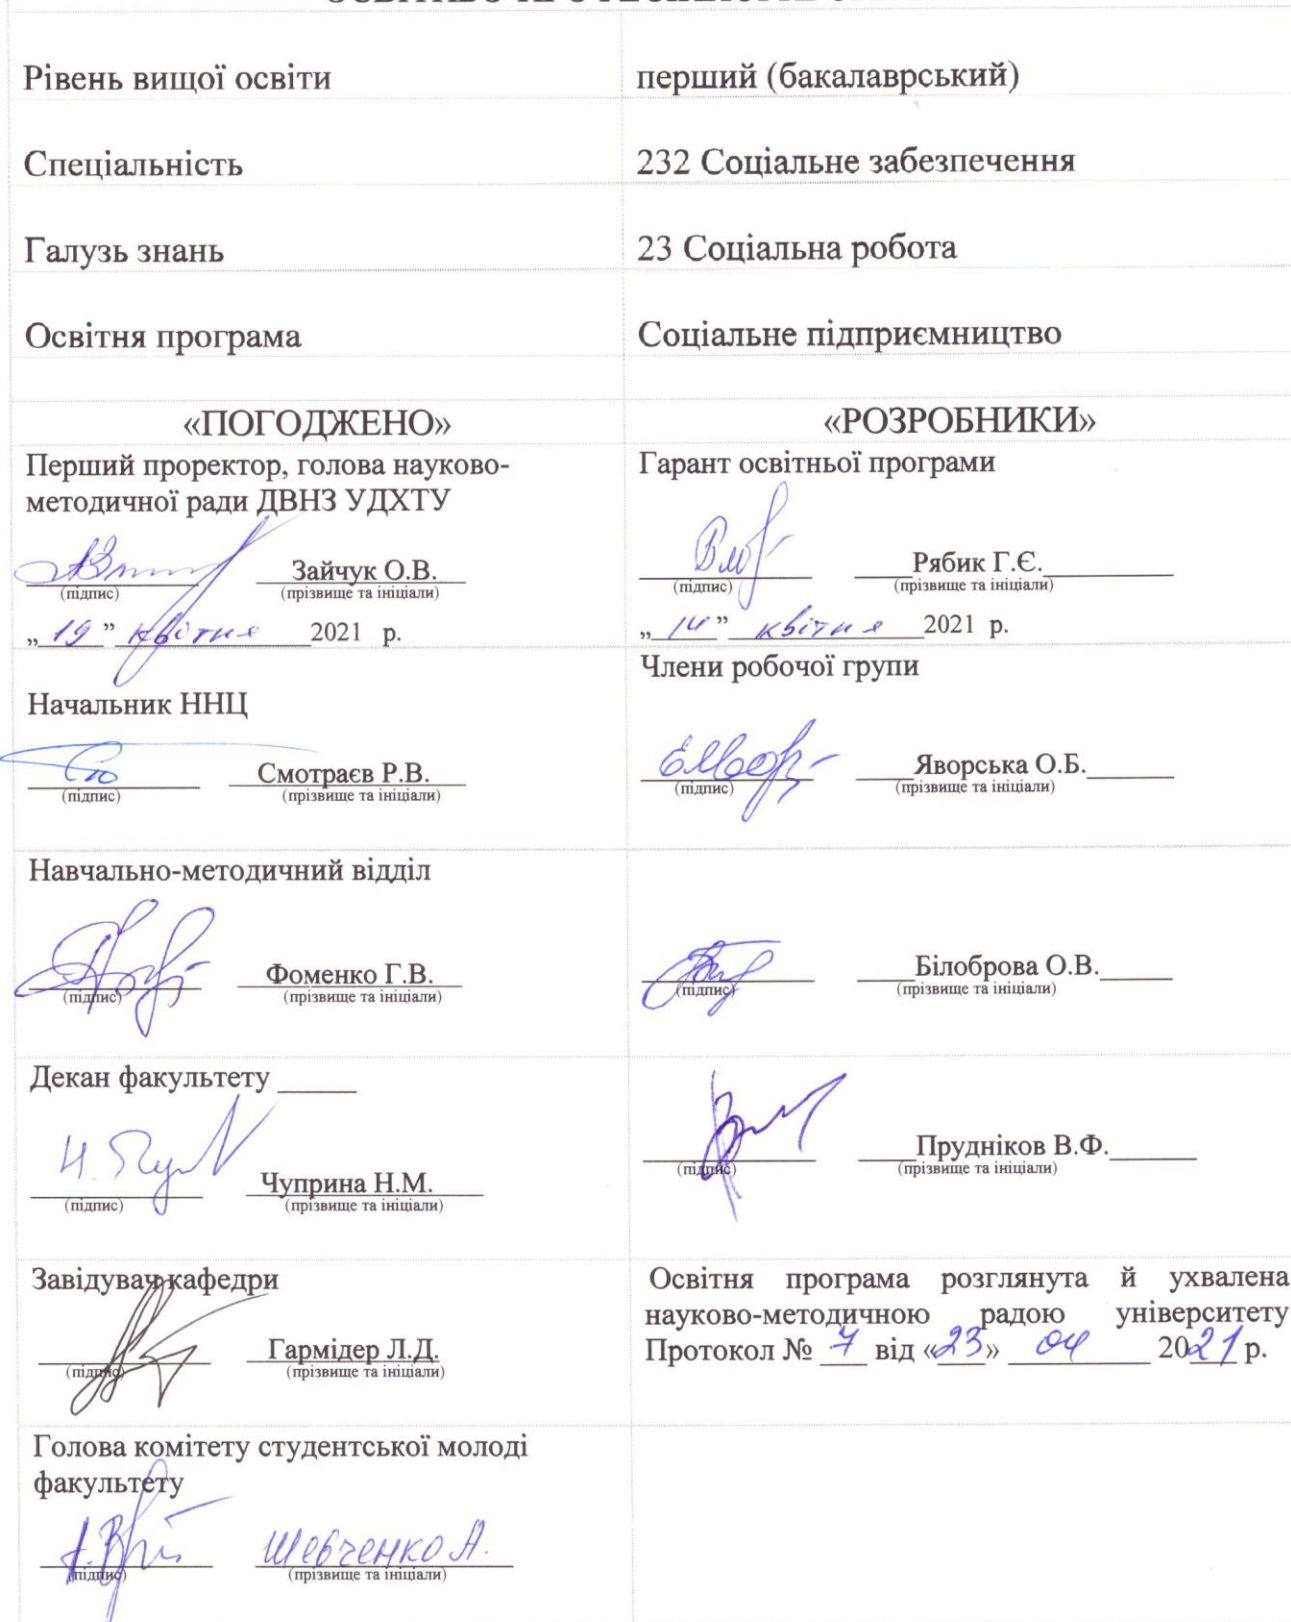 Рівень вищої освіти перший (бакалаврський)
Спеціальність 232 Соціальне забезпечення
Галузь знань 23 Соціальна робота
Освітня програма Соціальне підприємництво
«ПОГОДЖЕНО»
Перший проректор, голова науково-
методичної ради ДВНЗ УДХТУ
Зайчук О.В.
(підпис) (прізвище та ініціали)
„ 19 ” квітня 2021 р.
Начальник ННЦ
Смотраєв Р.В.
(підпис) (прізвище та ініціали)
Навчально-методичний відділ
Фоменко Г.В.
(підпис) (прізвище та ініціали)
Декан факультету _____
Чуприна Н.М.
(підпис) (прізвище та ініціали)
Завідувач кафедри
Гармідер Л.Д.
(підпис) (прізвище та ініціали)
Голова комітету студентської молоді
факультету
Шевченко А.
(підпис) (прізвище та ініціали)
«РОЗРОБНИКИ»
Гарант освітньої програми
Рябик Г.Є.
(підпис) (прізвище та ініціали)
„ 14 ” квітня 2021 р.
Члени робочої групи
Яворська О.Б.
(підпис) (прізвище та ініціали)
Білоброва О.В.
(підпис) (прізвище та ініціали)
Прудніков В.Ф.
(підпис) (прізвище та ініціали)
Освітня програма розглянута й ухвалена
науково-методичною радою університету
Протокол № 7 від «23» 04 2021 р.